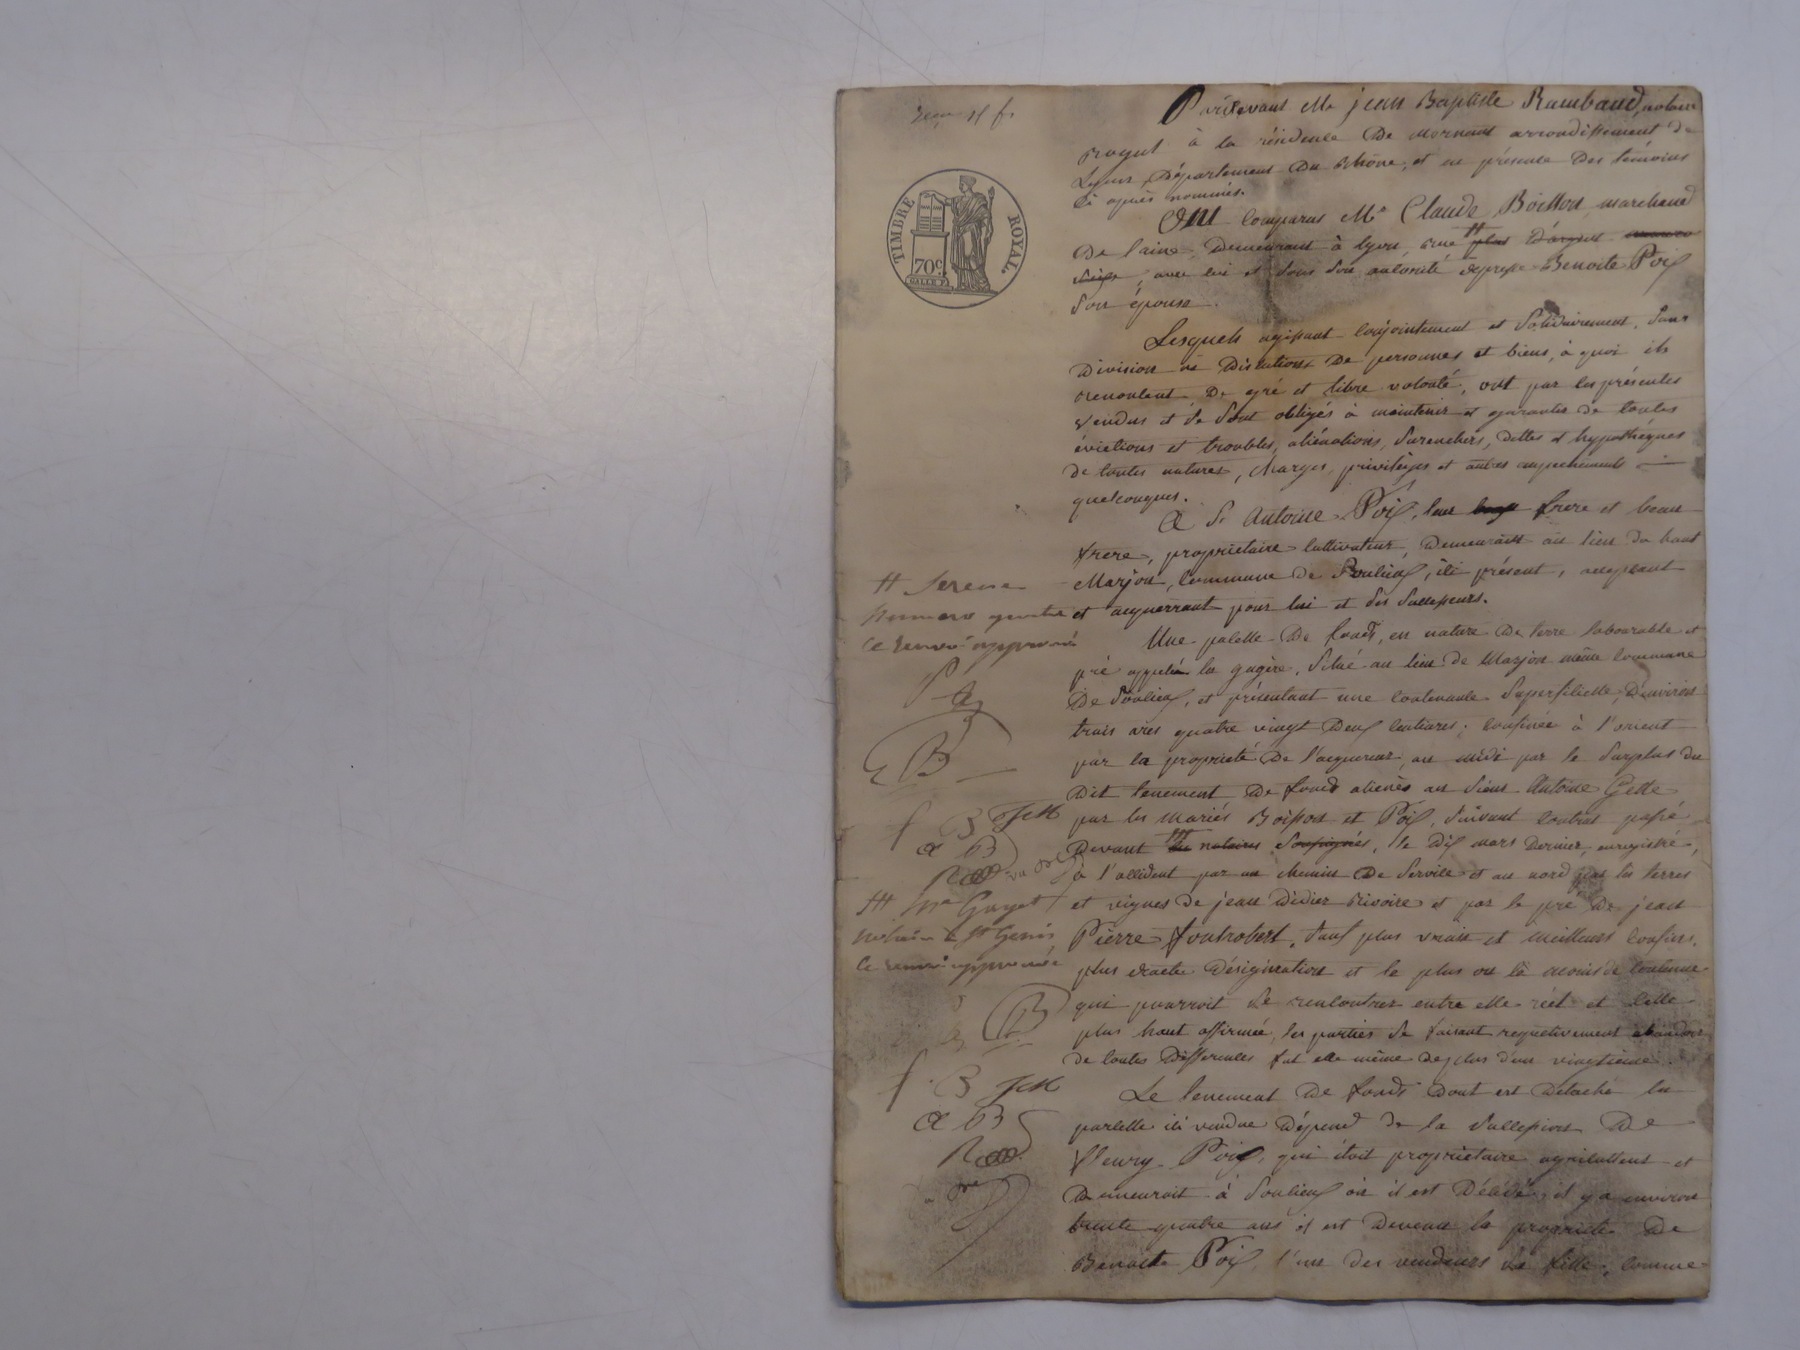 Pardevant Me jean Baptiste Rambaud, notaire
royal à la résidence de mornant arrondissement de
Lyon, Département du Rhône, et en présence des témoins
ci après nommés.
TIMBRE ROYAL.
70c.
Ont comparus Mr Claude Boisson, marchand
de laine, demeurant à lyon, rue # plat d'argent
avec lui et sous son autorité expresse Benoite Poix
son épouse.
Lesquels agissant conjointement et solidairement, sans
division ni discutions de personnes et biens, à quoi ils
renoncent de gré et libre volonté, ont par les présentes
vendus et se sont obligés à maintenir et garantir de toutes
évictions et troubles, aliénations, surenchers, dettes et hypothéques
de toutes natures, charges, privilèges et autres empechements
quelconques.
A Sr Antoine Poix, leur frere et beau
frere, propriétaire cultivateur, demeurant au lieu du haut
Marjon, commune de Soulieux, ici présent, acceptant
et acquerrant pour lui et ses successeurs.
# Sereine
numero quatre
ce renvoi approuvé
Une parcelle de fonds, en nature de terre labourable et
pré appelée la gagère, situé au lieu de Marjon même commune
de Soulieux, et présentant une contenance superficielle d'environ
trois ares quatre vingt deux centiares; confinée à l'orient
par la propriété de l'acquereur, au midi par le surplus du
dit tenement de fonds alienés au sieur Antoine Gette
par les mariés Boisson et Poix, suivant contrat passé
devant ## notaires soussignés, le dix mars dernier, enregistré,
à l'occident par un chemin de service et au nord par les terres
et vignes de jean didier rivoire et par le pré de jean
Pierre foutrobert, sauf plus vrais et meilleurs confins,
plus exacte désignation et le plus ou le moins de contenue
qui pourroit se rencontrer entre elle réel et celle
plus haut affirmée, les parties se faisant respectivement abandon
de toutes differences fut elle même de plus d'un vingtieme.
## Me Guyot
notaire à St Genis,
ce renvoi approuvé
Le tenement de fonds dont est detaché la
parcelle ici vendue dépend de la succession de
fleury Poix, qui étoit proprietaire agriculteur et
demeuroit à Soulieux où il est décédé, il y a environ
trente quatre ans et est devenu la propriété de
Benoite Poix l'un des vendeurs sa fille, comme